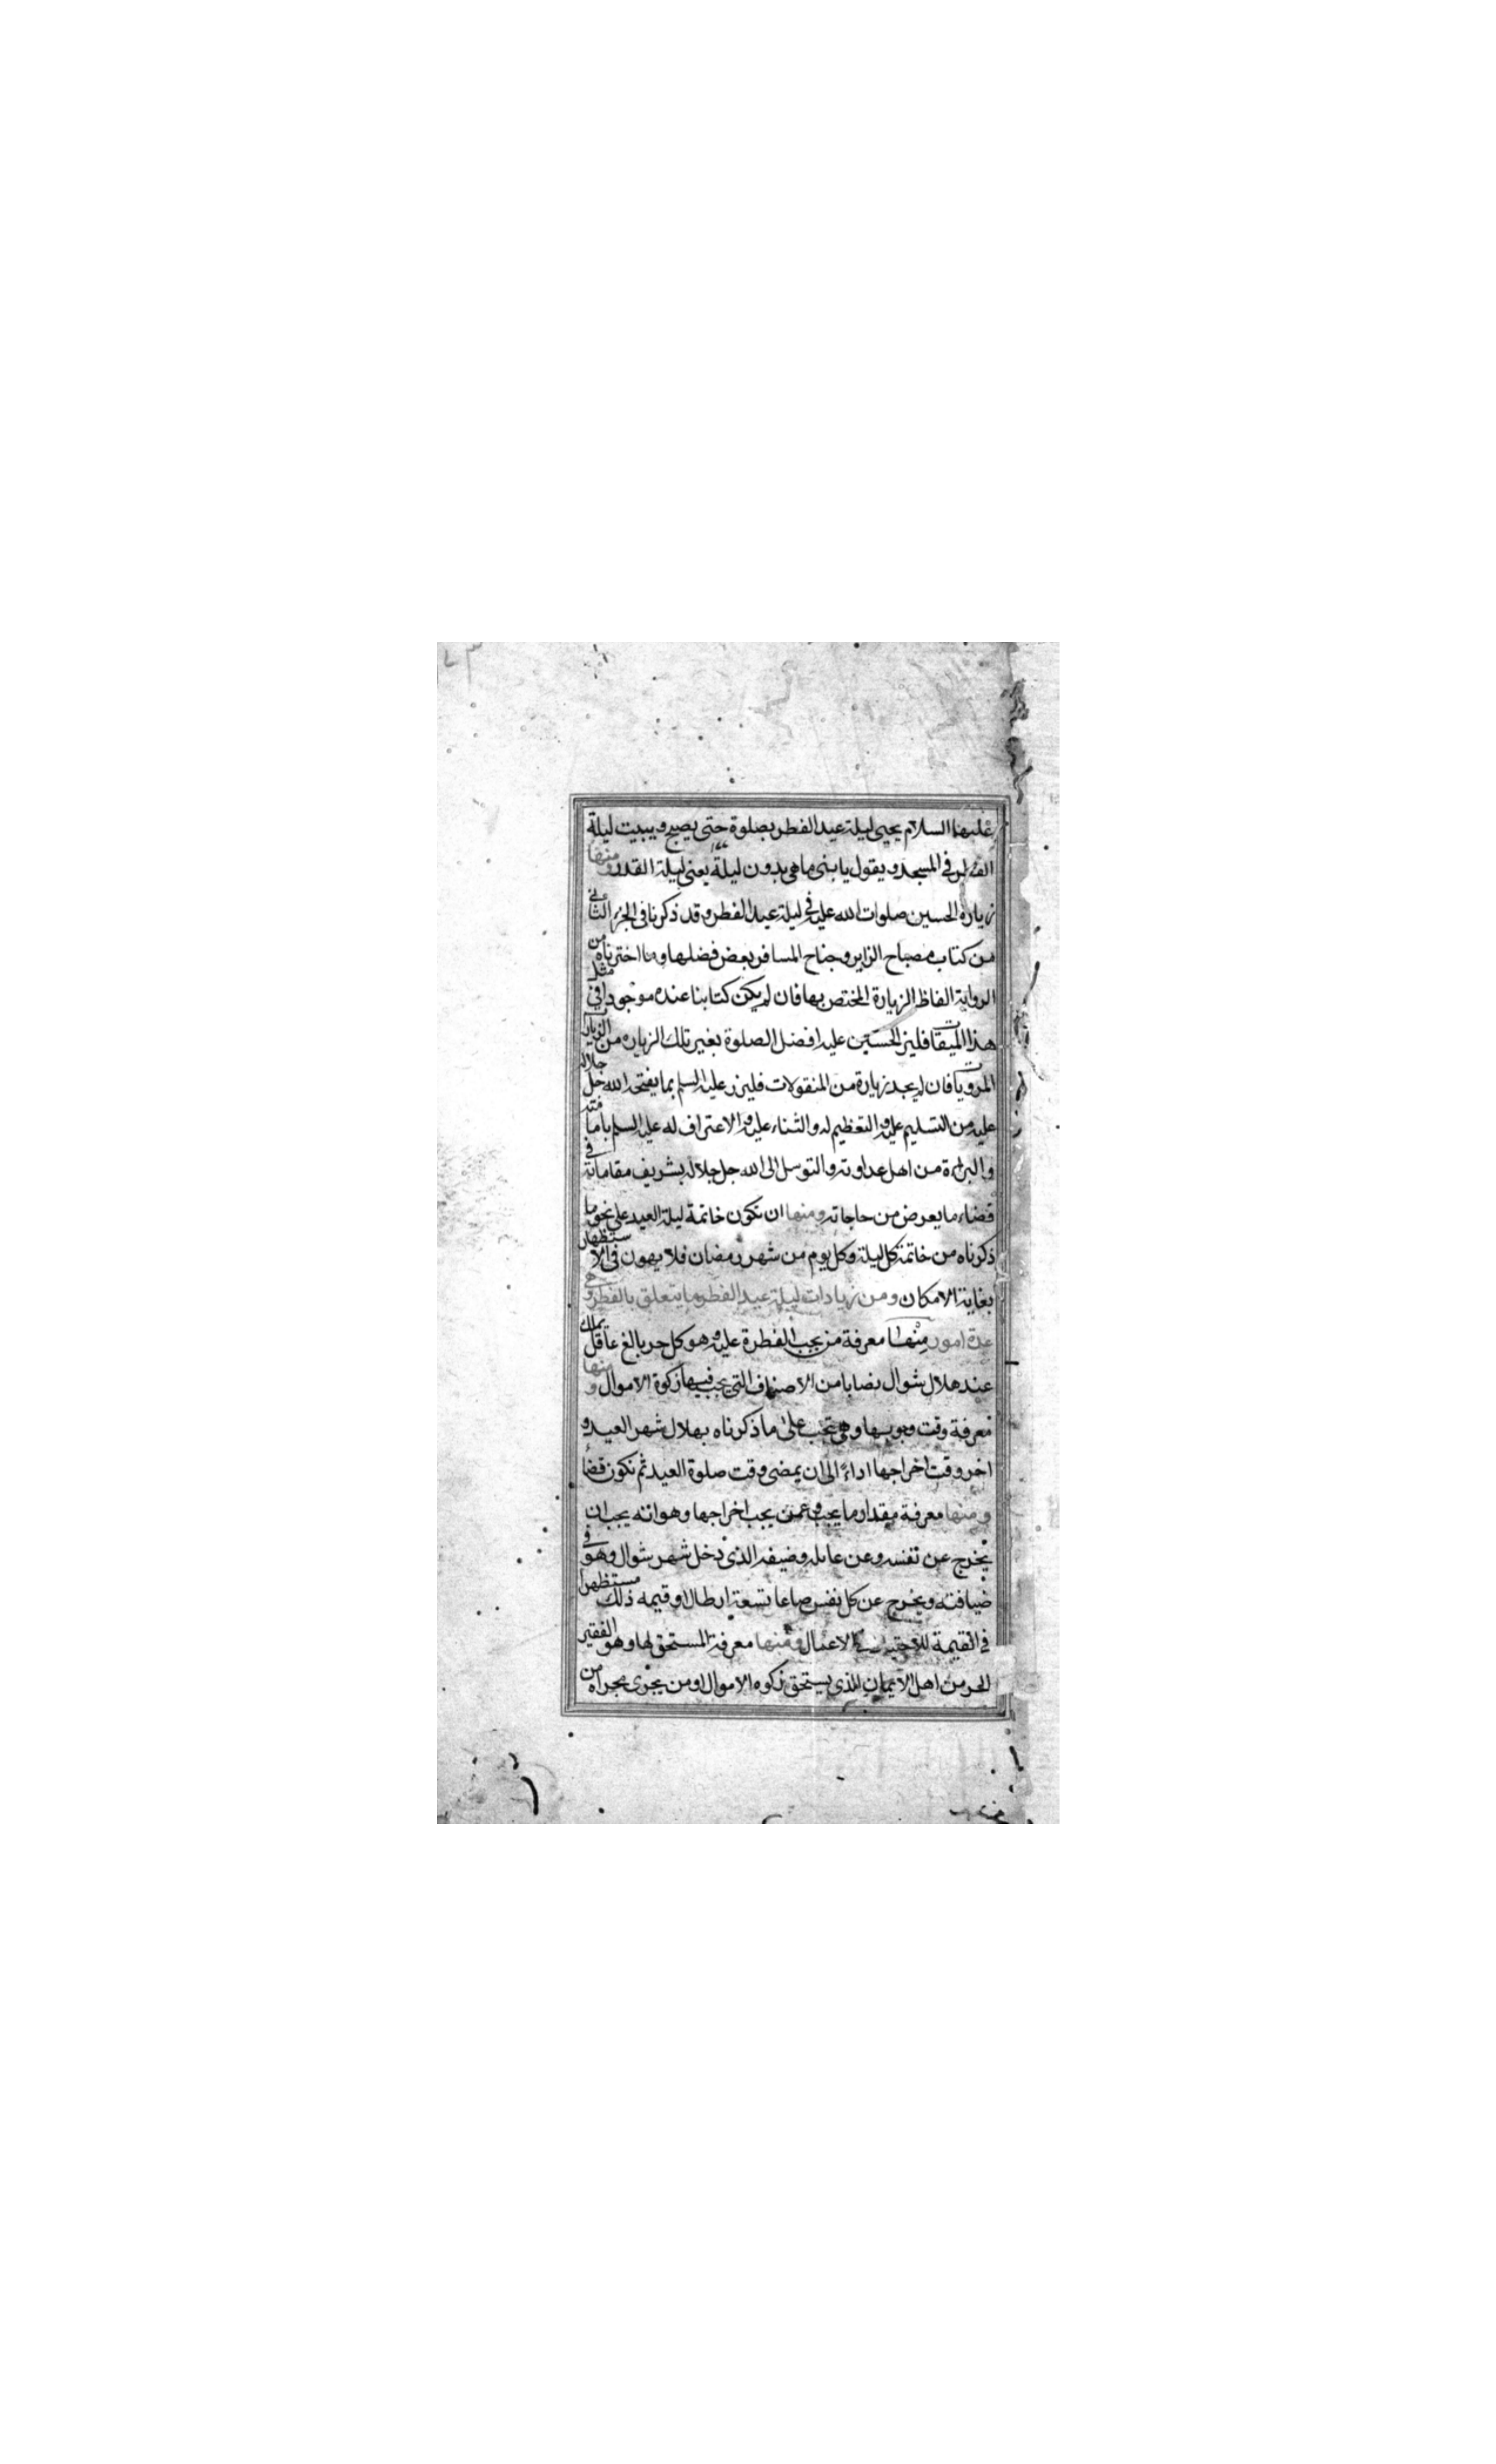 عليهما السلام يحيى ليلة عيد الفطر بصلوة حتى يصبح ويبيت ليلة
الفطر في المسجد ويقول يا بنى ما هي بدون ليلة يعنى ليلة القدر ومنها
زيارة الحسين صلوات الله عليه في ليلة عيد الفطر وقد ذكرنا في الجزء الثاني
من كتاب مصباح الزاير وجناح المسافر بعض فضلها وما اخترناه من
الرواية الفاظ الزيارة المختص بها فان لم يكن كتابنا عنده موجودا في مثل
هذا الميقات فليزر الحسين عليه افضل الصلوة بغير تلك الزياره من الزيارات
المرويات فان لم يجد زيارة من المنقولات فليزر عليه السلم بما يفتحه الله جل جلاله
عليه من التسليم عليه والتعظيم له والثناء عليه والاعتراف له عليه السلم بامامته
والبراءة من اهل عداوته والتوسل الى الله جل جلاله بشريف مقاماته في
قضاء ما يعرض من حاجاته ومنها ان تكون خاتمة ليلة العيد على نحو ما
ذكرناه من خاتمة كل ليلة وكل يوم من شهر رمضان فلا يهون في الاستظهار
بغاية الامكان ومن زيادات ليلة عيد الفطر ما يتعلق بالفطرة وهي
عدة امور منها معرفة من يجب الفطرة عليه وهو كل حر بالغ عاقل يملك
عند هلال شوال نصابا من الاصناف التي يجب فيها زكوة الاموال ومنها
معرفة وقت وجوبها وهي تجب على ما ذكرناه بهلال شهر العيد و
اخر وقت اخراجها اداءً الى ان يمضى وقت صلوة العيد ثم تكون قضاء
ومنها معرفة مقدار ما يجب وعمن يجب اخراجها وهو انه يجب ان
يخرج عن نفسه وعن عايله وضيفه الذي دخل شهر شوال وهو في
ضيافته ويخرج عن كل نفس صاعا تسعة ارطال او قيمه ذلك مستظهرا
في القيمة للاحتياط في الاعمال ومنها معرفة المستحق لها وهو الفقير
الحر من اهل الايمان الذي يستحق زكوه الاموال او من يجرى مجراه من